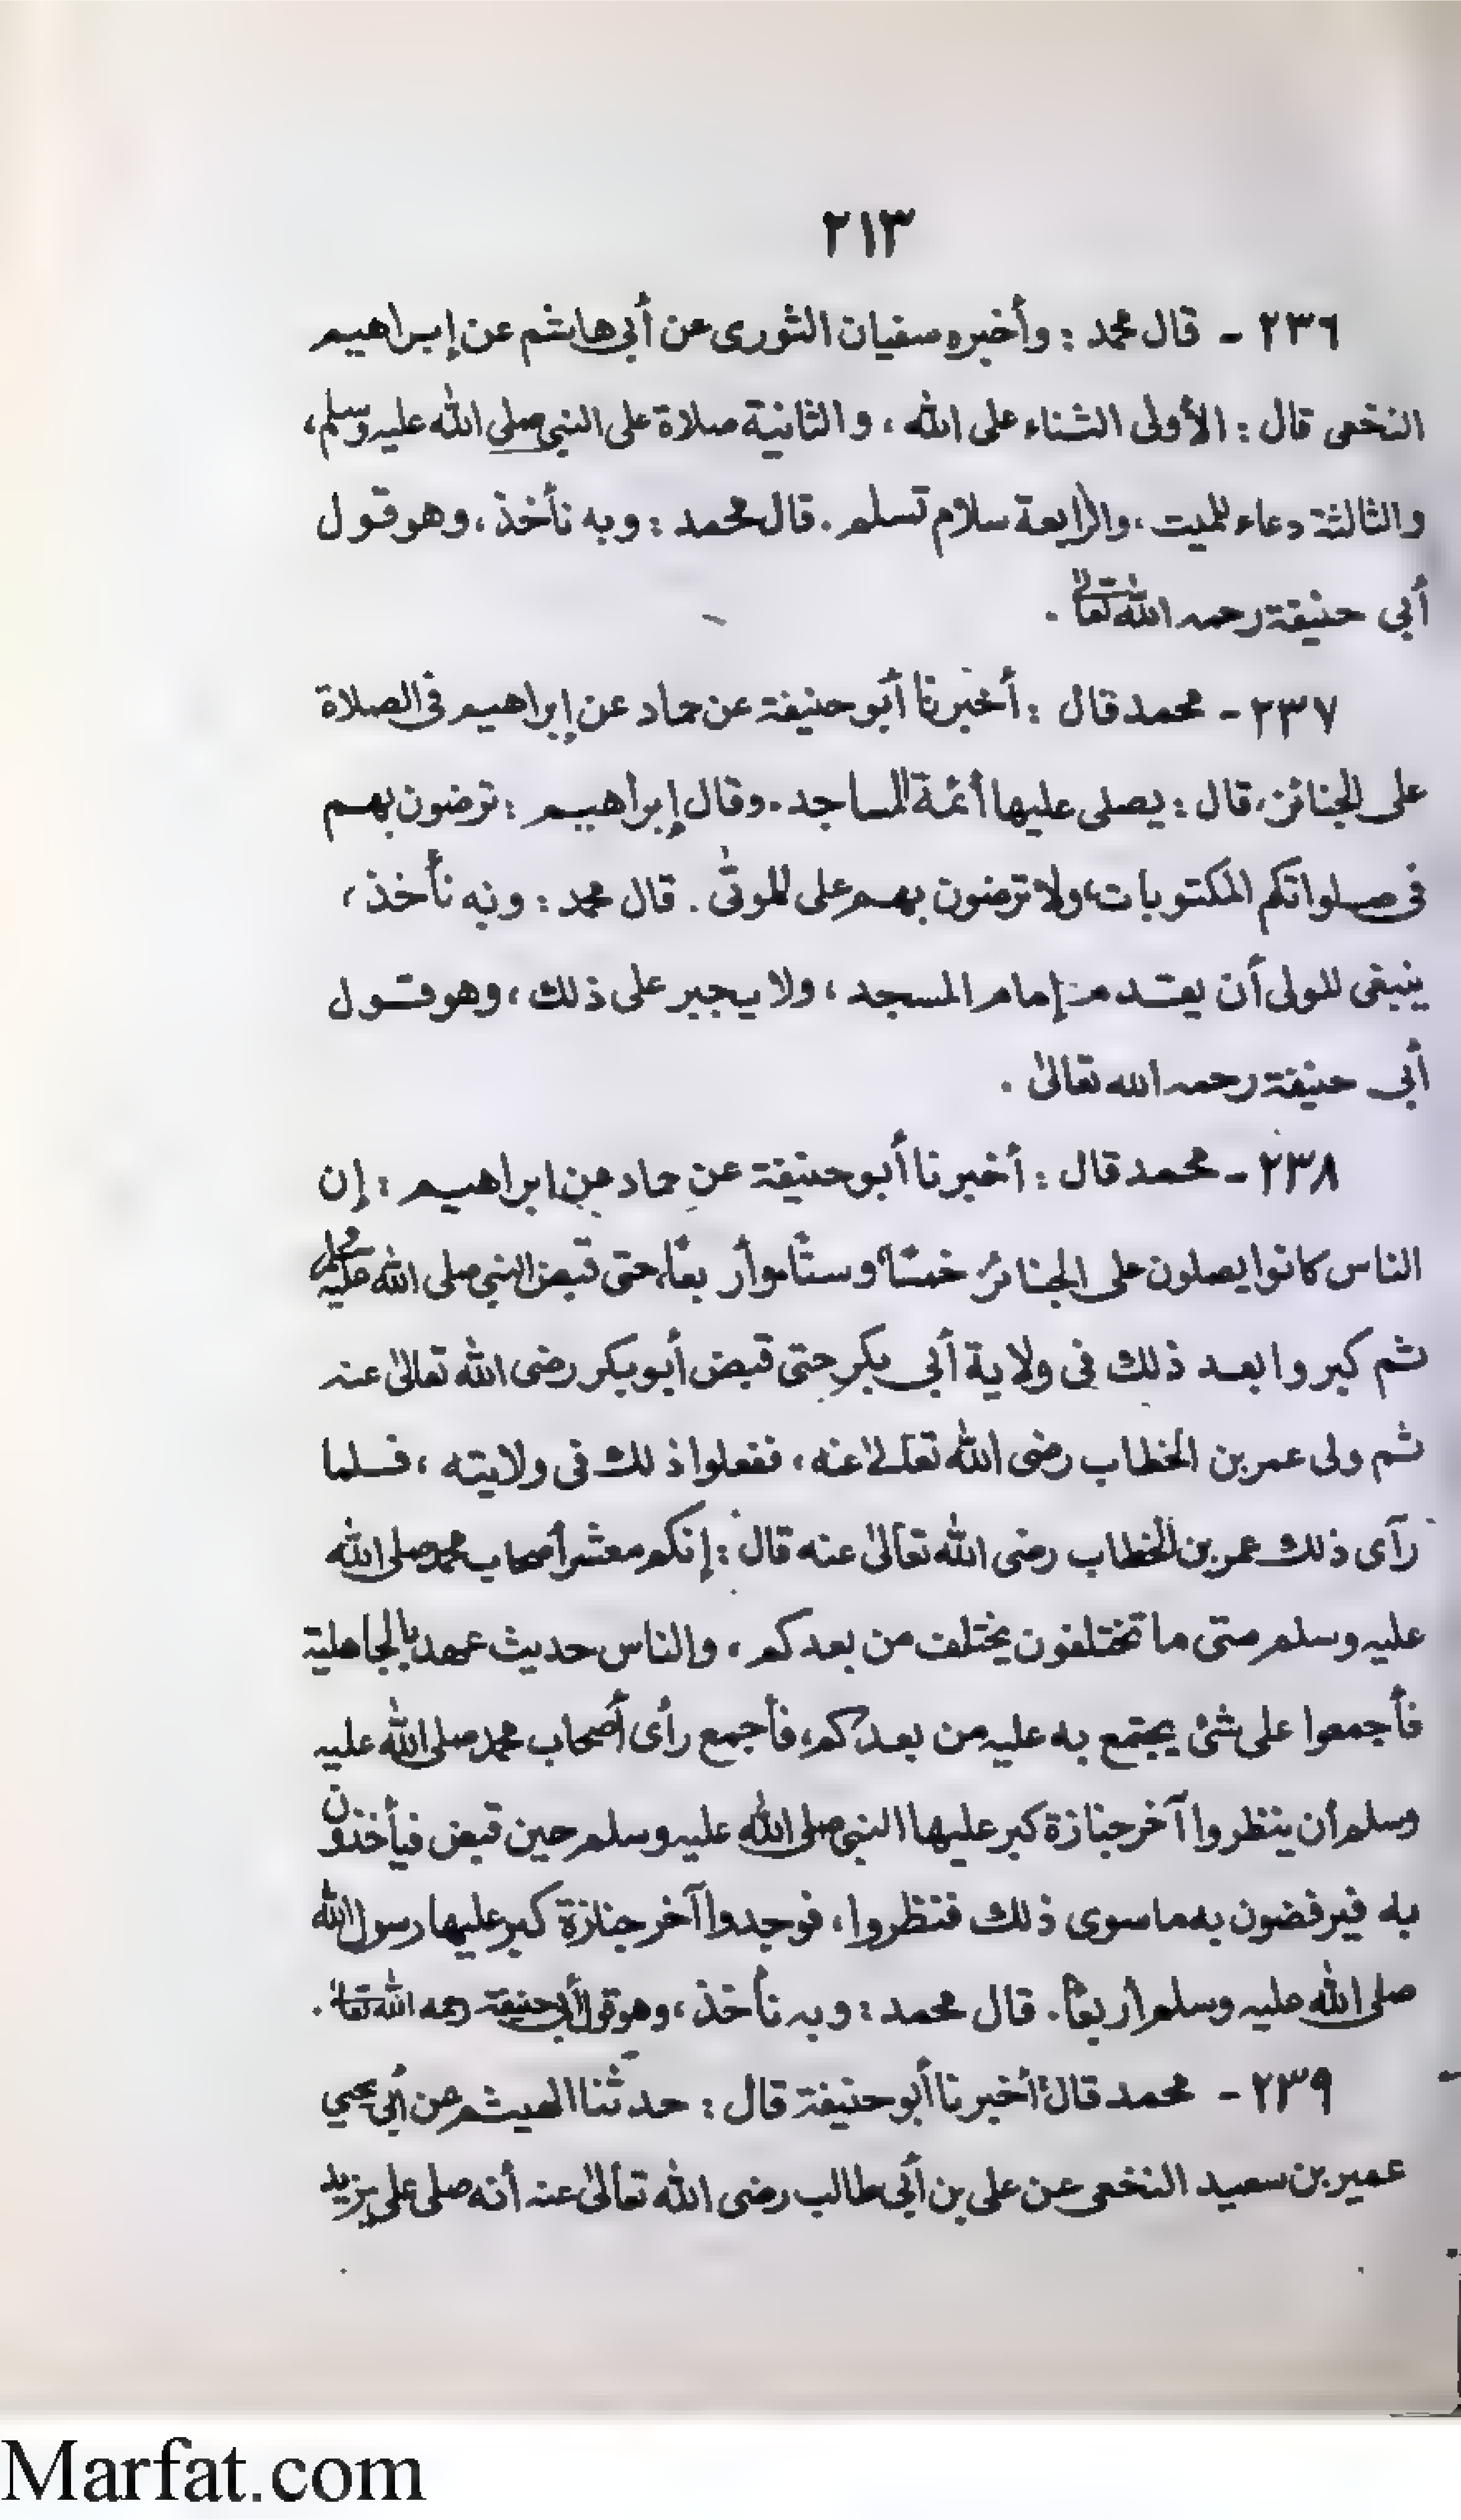 ٢١٣
٢٣٦ - قال محمد : وأخبره سفيان الثورى عن أبي هاشم عن إبراهيم
النخعى قال : الأولى الثناء على الله ، والثانية صلاة على النبي صلى الله عليه وسلم،
والثالثة دعاء للميت ، والرابعة سلام تسلم . قال محمد : وبه نأخذ ، وهو قول
أبي حنيفة رحمه الله تعالى .
٢٣٧ - محمد قال : أخبرنا أبو حنيفة عن حماد عن إبراهيم فى الصلاة
على الجنائز، قال : يصلى عليها أئمة المساجد . وقال إبراهيم : ترضون بهم
فى صلواتكم المكتوبات، ولا ترضون بهم على الموتى . قال محمد : وبه نأخذ ،
ينبغى للولى أن يقدم إمام المسجد ، ولا يجبر على ذلك ، وهو قول
أبى حنيفة رحمه الله تعالى .
٢٣٨ - محمد قال : أخبرنا أبو حنيفة عن حماد عن ابراهيم : إن
الناس كانوا يصلون على الجنائز خمسًا وستًا وأربعًا، حتى قبض النبي صلى الله عليه وسلم
ثم كبروا بعد ذلك فى ولاية أبي بكر حتى قبض أبو بكر رضى الله تعالى عنه
ثم ولى عمر بن الخطاب رضى الله تعالى عنه ، ففعلوا ذلك فى ولايته ، فلما
رآى ذلك عمر بن الخطاب رضى الله تعالى عنه قال : إنكم معشر أصحاب محمد صلى الله
عليه وسلم متى ما تختلفون يختلف من بعدكم ، والناس حديث عهد بالجاهلية
فأجمعوا على شئ يجتمع به عليه من بعدكم، فأجمع رأى أصحاب محمد صلى الله عليه
وسلم أن ينظروا آخر جنازة كبر عليها النبي صلى الله عليه وسلم حين قبض فيأخذون
به فيرفضون به ما سوى ذلك فنظروا ، فوجدوا آخر جنازة كبر عليها رسول الله
صلى الله عليه وسلم أربعًا . قال محمد : وبه نأخذ ، وهو قول أبي حنيفة رحمه الله تعالى .
٢٣٩ - محمد قال أخبرنا أبو حنيفة قال : حدثنا الهيثم عن أبي يحيي
عمير بن سعيد النخعى عن على بن أبي طالب رضى الله تعالى عنه أنه صلى على يزيد
Marfat.com